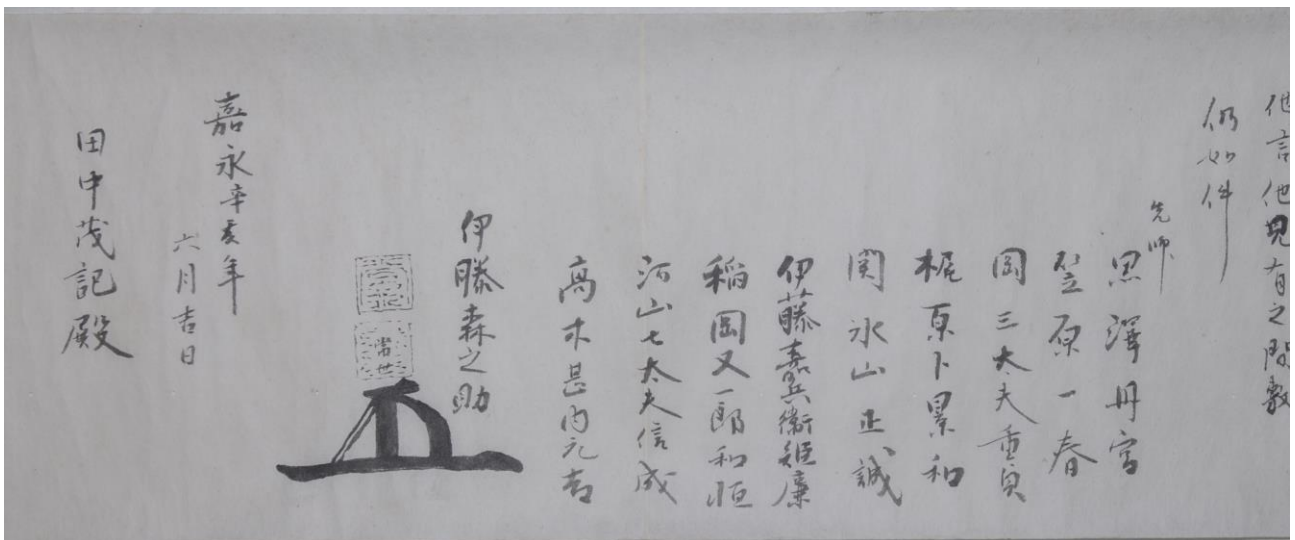 他言他見有之間敷
仍如件
先師
黒澤丹宮
笠原一春
岡三太夫重良
梶原卜景和
関氷山正誠
伊藤嘉兵衛廉
稲岡又一郎和恒
河山七太夫信成
高木甚内元
伊藤森之助
常世
嘉永辛亥年
六月吉日
田中茂記殿